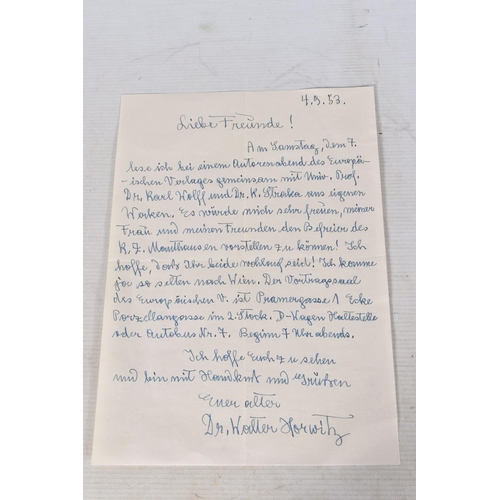 4.5.53.
Liebe Freunde!
Am Samstag, dem 7.
lese ich bei einem Autorenabend des Europä-
-ischen Verlages gemeinsam mit Univ. Prof.
Dr. Karl Wolff und Dr. K. Straka aus eigenen
Werken. Es würde mich sehr freuen, meiner
Frau und meinen Freunden den Befreier des
K.Z. Mauthausen vorstellen zu können! Ich
hoffe, dass Ihr beide wohlauf seid! Ich komme
ja so selten nach Wien. Der Vortragssaal
des Europäischen V. ist Pramergasse 1 Ecke
Porzellangasse im 2. Stock. D-Wagen Haltestelle
oder Autobus Nr. 7. Beginn 7 Uhr abends.
Ich hoffe Euch zu sehen
und bin mit Handkuß und Grüßen
Euer alter
Dr. Walter Horwitz